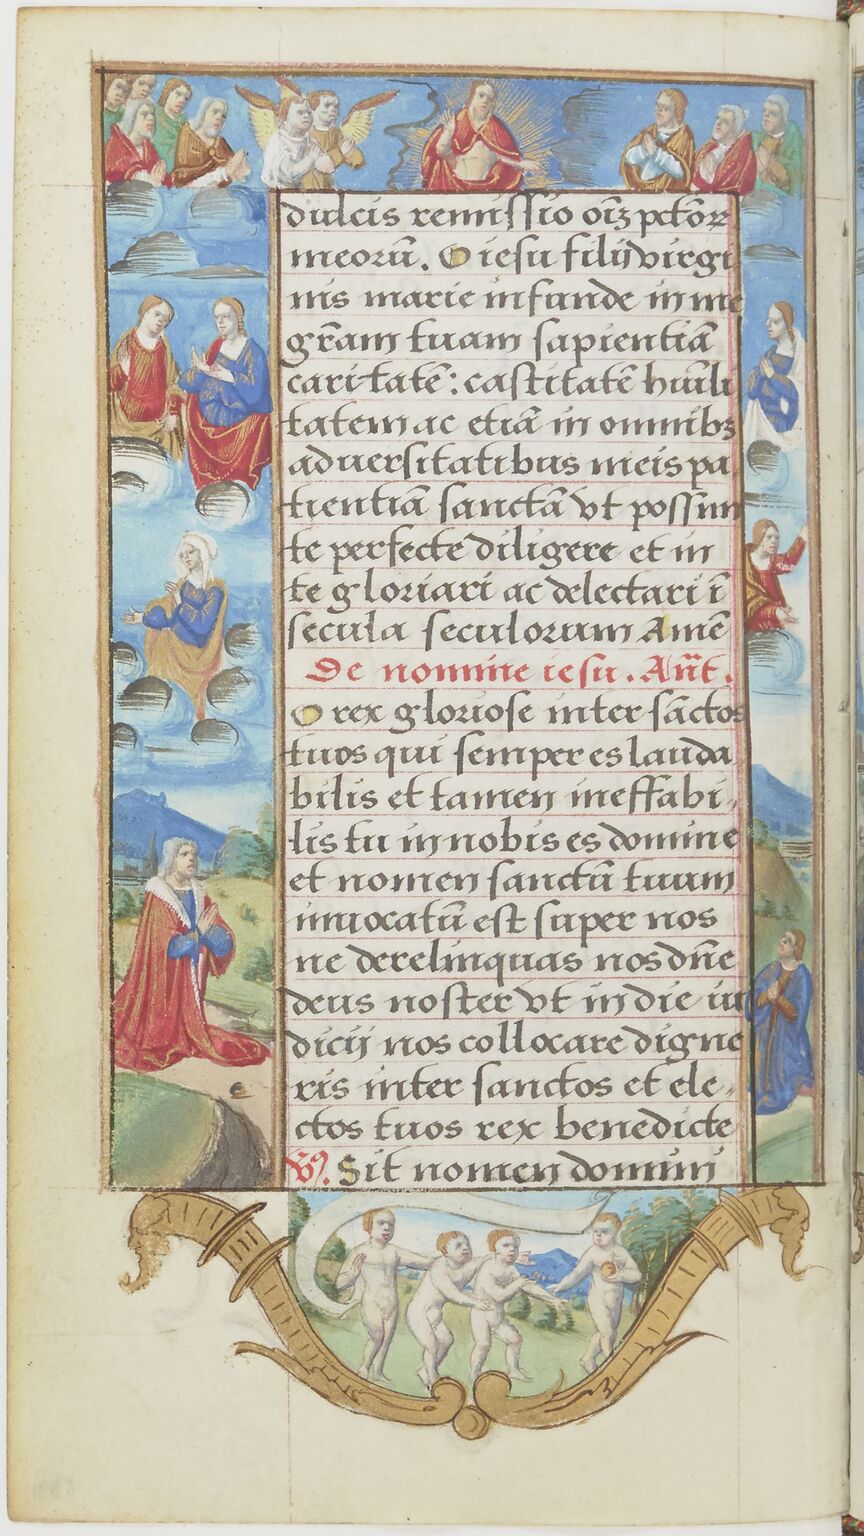 dulcis remissio oĩʒ pctoꝝ
meorũ. O iesu filij virgi
nis marie infunde in me
gr̃am tuam sapientiã
caritatẽ: castitatẽ hũili
tatem ac etiã in omnibʒ
aduersitatibus meis pa,
tientiã sanctã vt possim
te perfecte diligere et in
te gloriari ac delectari ĩ
secula seculorum Amẽ
De nomine iesu. Añt.
O rex gloriose inter sãctos
tuos qui semper es lauda,
bilis et tamen ineffabi,
lis tu in nobis es domine
et nomen sanctũ tuum
inuocatũ est super nos
ne derelinquas nos dñe
deus noster vt in die iu
dicij nos collocare digne
ris inter sanctos et ele,
ctos tuos rex benedicte
℣. Sit nomen domini